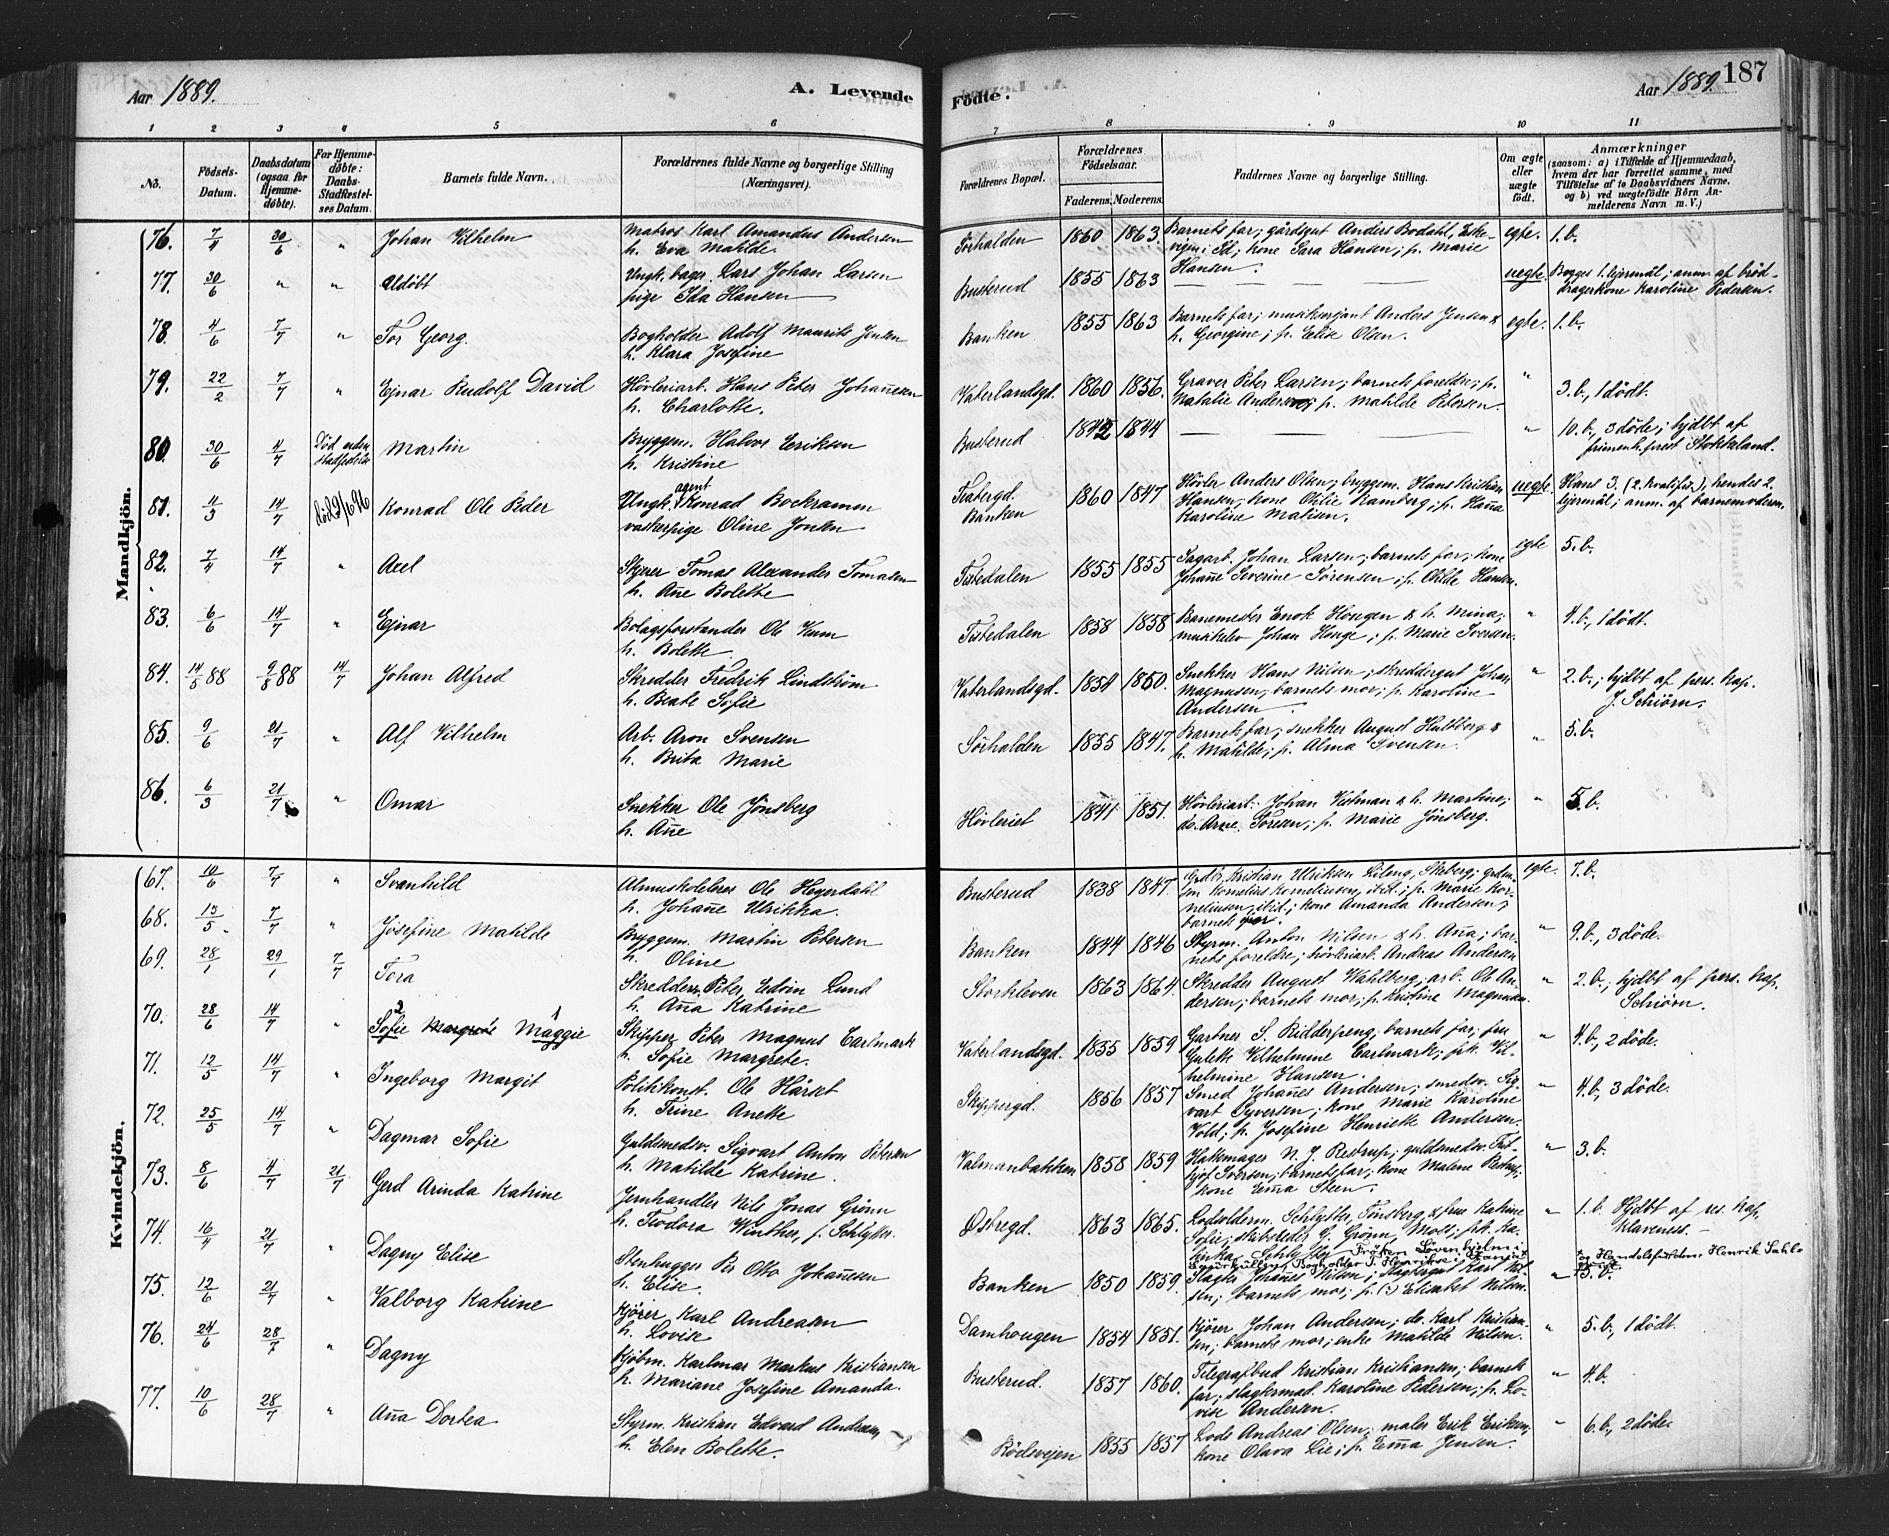 Aar 1889.
A. Levende
Födte.
Aar 1889.
187
1 2 3 4 5 6 7 8 9 10 11
No.
Födsels-Datum.
Daabsdatum (ogsaa for Hjemme-døbte).
For Hjemme-døbte: Daabs-Stadfæstel-ses Datum.
Barnets fulde Navn.
Forældrenes fulde Navne og borgerlige Stilling (Næringsvei).
Forældrenes Bopæl.
Forældrenes Fødselsaar.
Faderens. Moderens.
Faddernes Navne og borgerlige Stilling.
Om ægte eller uægte født.
Anmærkninger
(saasom: a) i Tilfælde af Hjemmedaab, hvem der har forrettet samme, med Tilføielse af to Daabsvidners Navne, og b) ved uægtefødte Börn An-melderens Navn m. V.)
Mandkjön.
76. 7/4 30/6 " Johan Vilhelm Matros Karl Amandus Andersen h. Eva Matilde Sörhalden 1860 1863. Barnets far; gårdsgut Anders Bodahl, Eske-vigen; Id; kone Sara Hansen; p. Marie Hansen. egte. 1.b.
77. 30/6 " " Udöbt Ungk. bager Lars Johan Larsen pige Ida Hansen Busterud 1855 1863 — — — — uegte. Begges 1. leiermål; anm. af bröd-dragerkone Karoline Pedersen.
78. 4/6 7/7 " Tor Georg. Bogholder Adolf Maurits Jensen h. Klara Josefine Banken 1855 1863 Barnets far; musikersjant Anders Jensen & h. Georgine; p. Elise Olsen. egte. 1.b.
79. 22/2 7/7 " Ejnar Rudolf David Hövleriarb. Hans Peter Johanesen h. Charlotte. Vaterlandsgd. 1860 1856. Graver Peter Larsen; barnets foreldre; p. Natalie Andersen; p. Matilde Petersen. " 3.b., 1 dödt.
80. 30/6 4/7 Död uden stadfestelse Martin Bryggem. Halvor Eriksen h. Kristine Busterud 1842 1844 — — — " 10.b., 3 döde; hjdbt af frimenh. prest Stokkeland.
81. 11/3 14/7 död 9/6 96 Konrad Ole Peder Ungk. agent Konrad Bockramm vaskerpige Oline Jensen Banken 1860 1847 Hövler Anders Olsen; bryggem. Hans Kristian Hansen; kone Otilie Ramberg; p. Hana Karoline Matisen. uegte. Hans 3. (2. kvalifis.), hendes 2. leiermål; anm. af barnemoderen.
82. 7/4 14/7 " Axel Skjerer Tomas Alexander Tomasen h. Ane Bolette Tistedalen 1855 1855 Sagarb. Johan Larsen; barnets far; kone Johane Severine Sörensen; p. Otilde Hansen. egte 5.b.
83. 6/6 14/7 " Ejnar Bolagsforstander Ole Veum h. Bolette Tistedalen 1858 1858 Banemester Enok Hougen & h. Mina; musikelev Johan Hauge; p. Marie Iversen. " 4.b., 1 dödt.
84. 14/5 88 9/8 88 14/7 Johan Alfred Skredder Fredrik Lindström h. Beate Sofie Vaterlandsgd. 1854 1860. Snekker Hans Nilsen; skreddergut Johan Magnusen; barnets mor; p. Karoline Andersen. " 2.b.; hjdbt af pers. kap. J. Schiörn.
85. 9/6 21/7 " Alf Vilhelm Arb. Aron Svensen h. Brita Marie Sörhalden 1855 1847. Barnets far; snekker August Hultberg & h. Matilde; p. Alma Svensen. " 5.b.
86. 6/3 21/7 " Omar Snekker Ole Jönsberg h. Ane Hövleriet 1841 1851. Hövleriarb. Johan Vestman & h. Martine; do. Arne Toresen; p. Marie Jönsberg. " 5.b.
Kvindekjön.
67. 10/6 7/7 " Svanhild Almueskolelerer Ole Heyerdahl h. Johane Ulrikka. Busterud 1838 1847. Grdbr. Kristian Ulriksen Lileng, Skeberg; grdm-sen Kornelius Korneliussen, ibid.; p. Marie Kor-neliusen, ibid.; kone Amanda Andersen; barnets far. egte. 7.b.
68. 13/5 7/7 " Josefine Matilde Bryggem. Martin Petersen h. Oline Banken 1844 1846 Styrm. Anton Nilsen & h. Ana; bar-nets foreldre; hövleriarb. Andreas Andersen " 9.b., 3 döde.
69. 28/1 29/1 7/7 Tora Skredder Peter Edvin Lund h. Ana Katrine Storkleven 1863 1864. Skredder August Wahlberg; arb. Ole An-dersen; barnets mor; p. Kristine Magnusen. " 2.b., hjdbt af pers. kap. Schiörn.
70. 28/6 14/7 " Sofie Margrete Maggie Skipper Peter Magnus Carlmark h. Sofie Margrete. Vaterlandsgd. 1855 1859 Gartner S. Ridderspeng; barnets far; fru Guleth Vilhelmine Carlmark; frk. Vil-helmine Hansen. " 4.b., 2 döde.
71. 12/5 14/7 " Ingeborg Margit Politikonst. Ole Hårset h. Trine Anette Skippergd. 1856 1857 Smed Johanes Andersen; smedsv. Sig-vart Syversen; kone Marie Karoline Vold; p. Josefine Henriette Andersen. " 4.b., 3 döde.
72. 25/5 14/7 " Dagmar Sofie Guldsmedsv. Sigvart Anton Petersen h. Matilde Katrine. Valmanbakken 1858 1859 Hattemager N. J. Restrup; guldsmedsv. Frit-hjof Iversen; barnets far; kone Malene Restrup; kone Ema Steen. " 3.b.
73. 8/6 4/7 21/7 Gerd Arinda Katrine Jernhandler Nils Jonas Grönn h. Teodora Winther, f. Schlytter. Östregd. 1863 1865. Lodsolderm. Schlytter, Tönsberg, & frue Katrine Sofie; skibsreder G. Grönn, Moss; frk. Ka-tinka Schlytter, Fröken Lövenhjelm; Bogholder J. Henriksen " 1.b. Hjdbt af res. kap. Klaveness. — og Handelsfuldm. Henrik Sahlb
74. 16/4 21/7 " Dagny Elise Stenhugger Per Otto Johanesen h. Elise. Banken 1850 1859. Slagter Johanes Nilsen; slagtergut Karl Nil-sen; barnets mor; p. Elisabet Nilsen. " 3.b.
75. 12/6 21/7 " Valborg Katrine Kjörer Karl Andreasen h. Lovise Damhougen 1854 1851. Kjörer Johan Andersen; do. Karl Kristian-sen; barnets mor; enke Matilde Nilsen. " 5.b., 1 dödt.
76. 24/6 28/7 " Dagny Kjöbm. Karlmar Markus Kristiansen h. Mariane Josefine Amanda. Busterud. 1857 1860. Telegrafbud Kristian Kristiansen; barnets far; slagtermad. Karoline Pedersen; p. Lo-vise Andersen. " 4.b.
77. 10/6 28/7 " Ana Dortea Styrm. Kristian Edvard Andreasen h. Elen Bolette. Rödsvejen 1855 1857 Lods Andreas Olsen; maler Erik Eriksen; kone Olava Lie; p. Ema Jensen. " 6.b., 2 döde